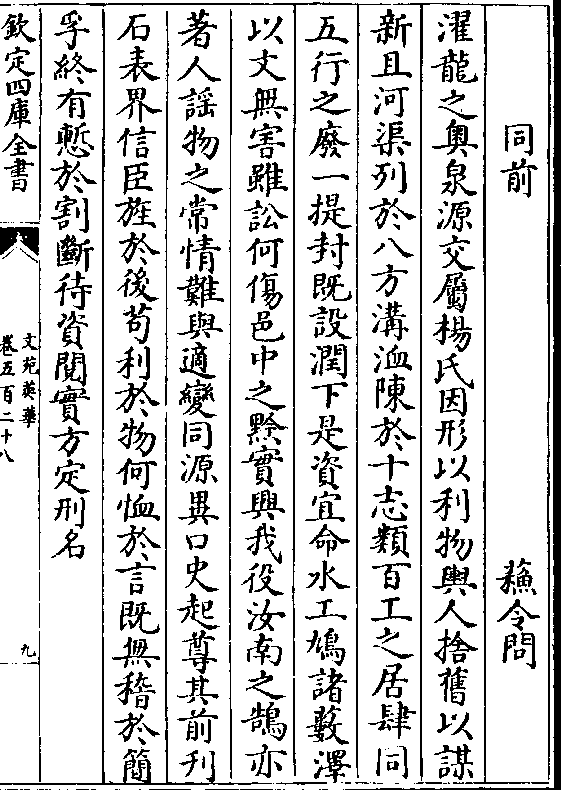 同前　蘓令問
濯龍之奥泉源交屬楊氏因形以利物輿人捨舊以謀
新且河渠列於八方溝洫陳於十志類百工之居肆同
五行之廢一提封既設潤下是資宜命水工鳩諸藪澤
以文無害雖訟何傷邑中之黔實興我役汝南之鵠亦
著人謡物之常情難與適變同源異口史起尊其前刋
石表界信臣旌於後苟利於物何恤於言既無稽於簡
孚終有慙於割斷待資閲實方定刑名
欽定四庫全書
文苑英華
卷五百二十八
九